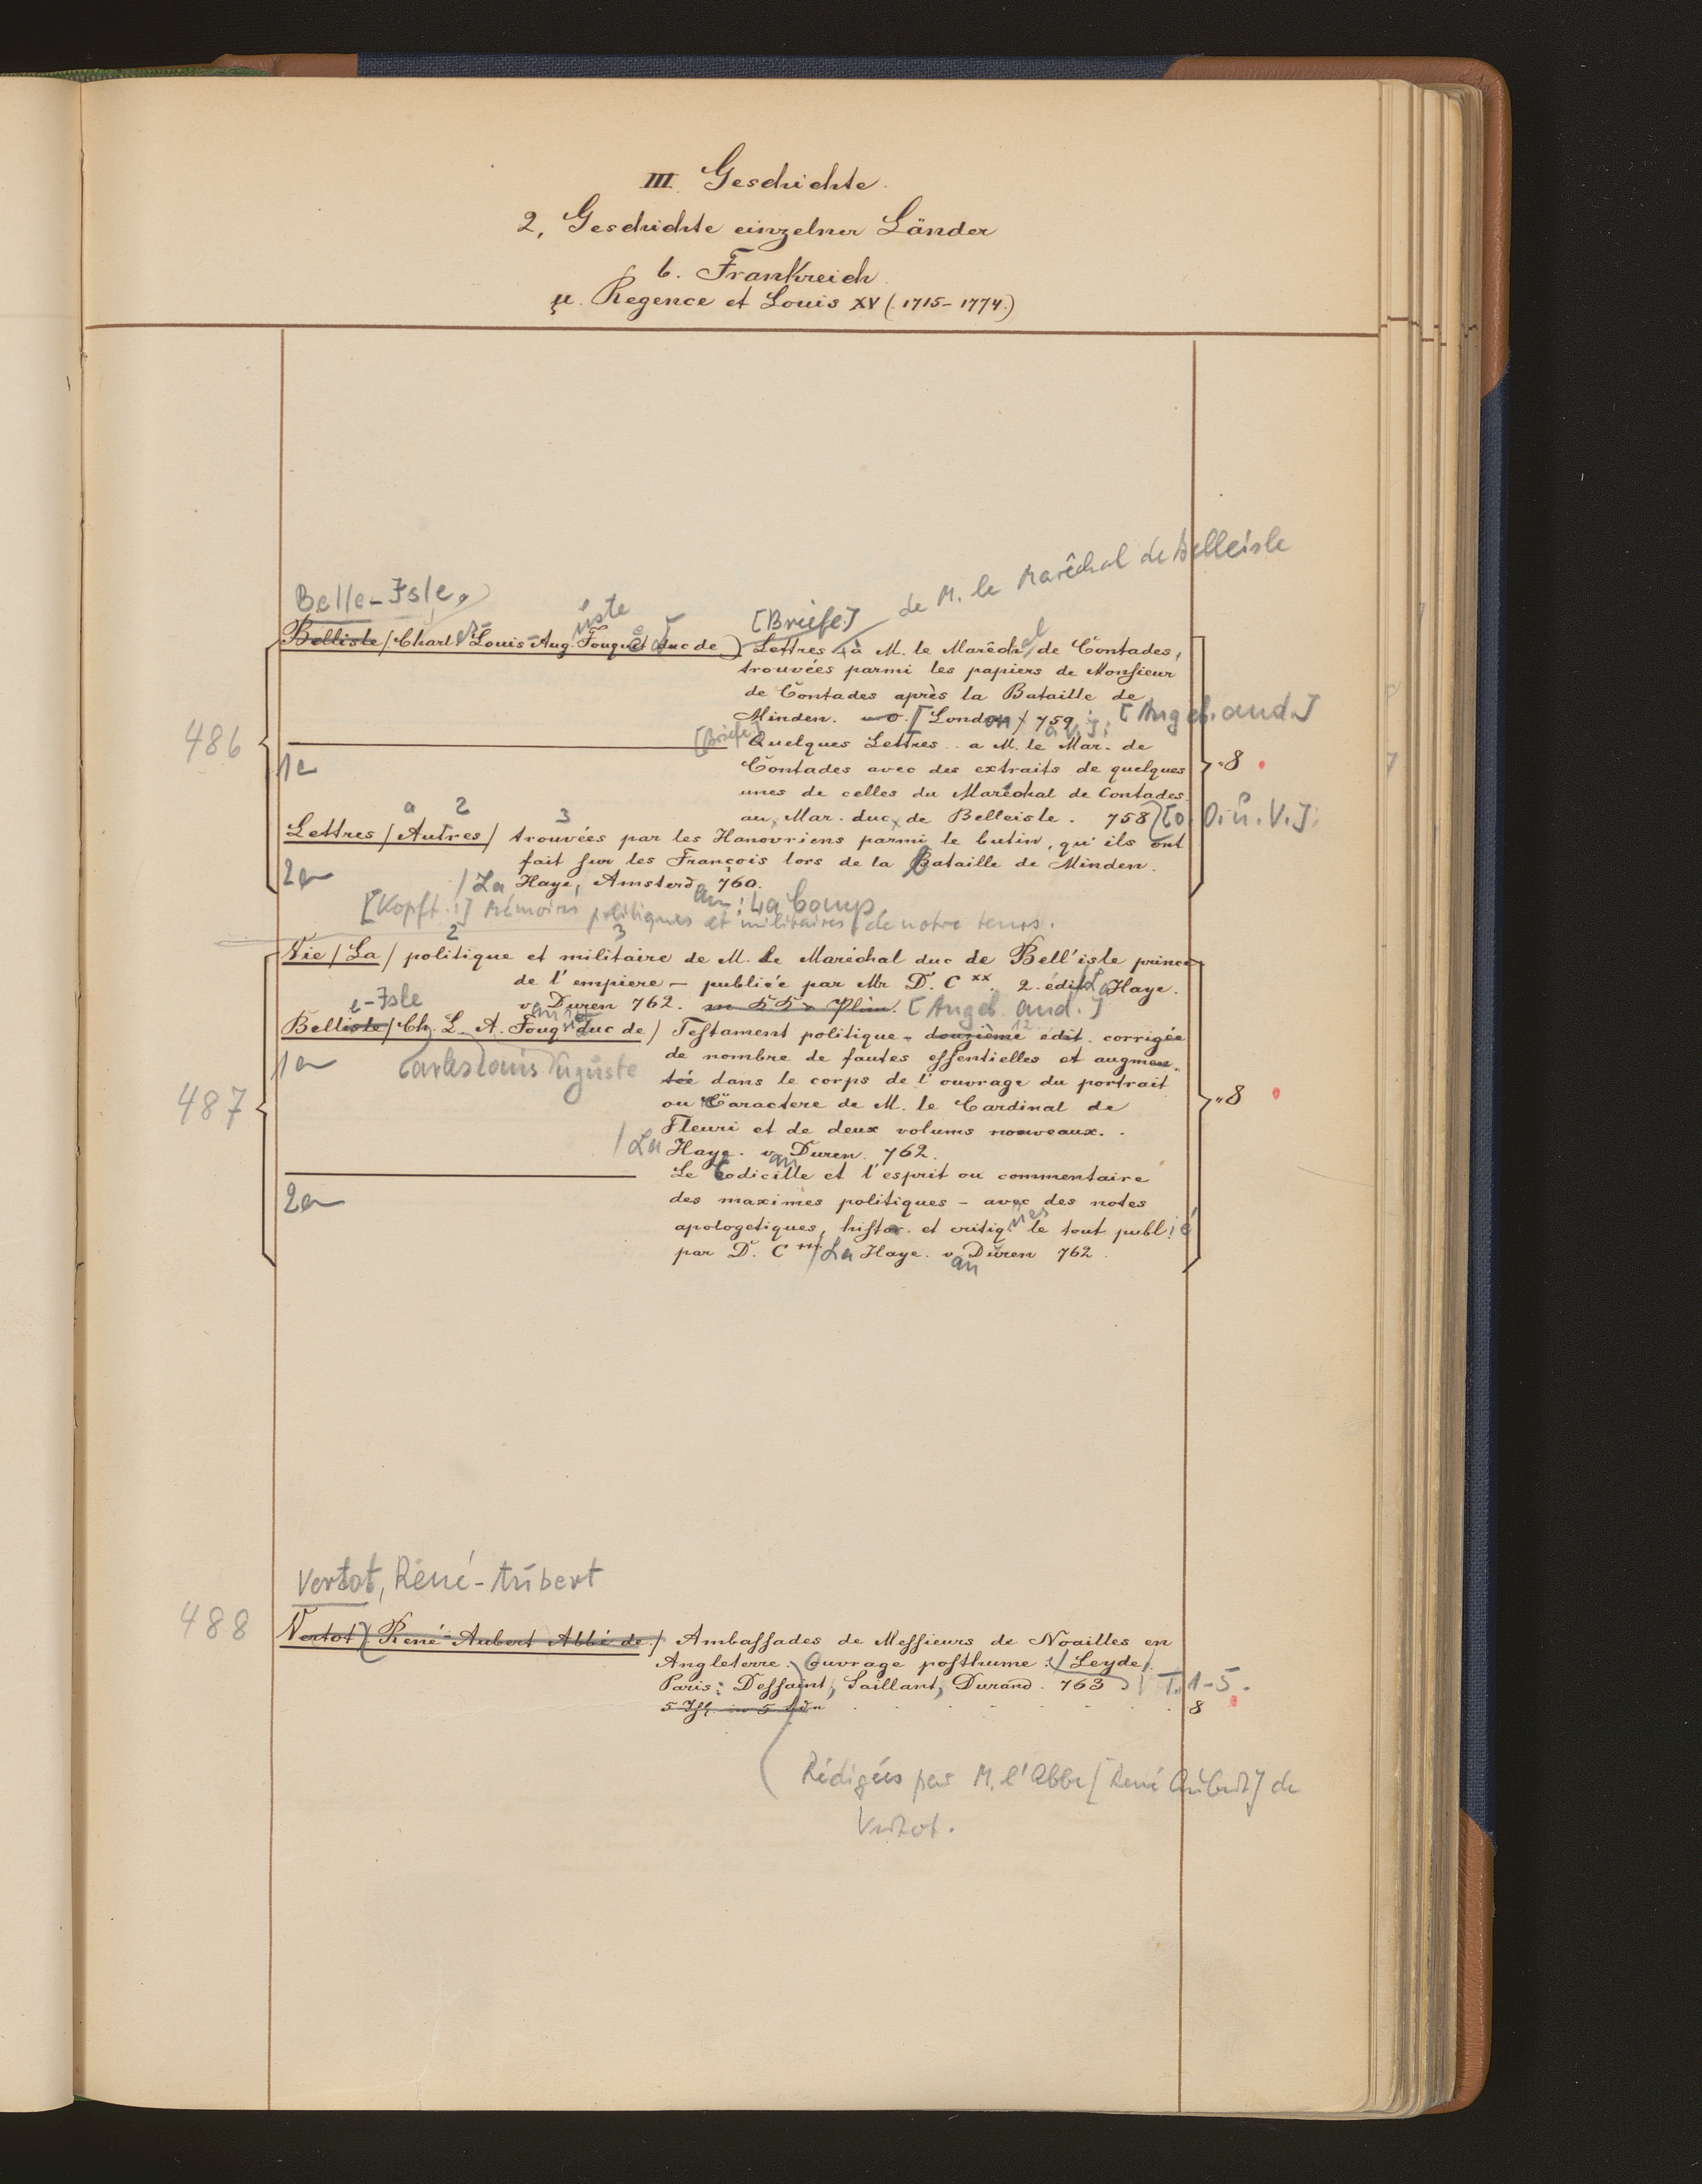 III. Geschichte.
2, Geschichte einzelner Länder
b. Frankreich.
µ. Regence et Louis XV (1715-1774.)
de M. le Marêchal de Belleisle
Belle-Isle,
[Briefe]
486
Belliste / Charl es Louis-Aug. Fouquet duc de) Lettres à M. le Marêchal de Contades,
trouvées parmi les papiers de Monsieur
de Contades après la Bataille de
Minden. [London / 759 [Angeb. and.]
[Briefe] Quelques Lettres .. a M. le Mar. de
1a Contades avec des extraits de quelques "8
unes de celles du Maréchal de Contades
au Mar. duc de Belleisle. 758 [o. O. u. V.];
a 2 3
Lettres / Autres / trouvées par les Hanovriens parmi le butin, qu'ils ont
fait sur les François lors de la Bataille de Minden.
2a / La Haye, Amsterd. 760.
an: La Comp.
[Kopft.:] Mémoires politiques et militaires de notre tems.
2 3
Vie / La / politique et militaire de M. Le Maréchal duc de Bell'isle prince
de l'empiere – publiée par Mr D. C xx. 2. édit. La Haye.
v. Duren 762. [Angeb. and.]
e-Isle
487
Belliste / Ch. L. A. Fouq. duc de) Testament politique – douzième 12. édit. corrigée
1a Carles Louis Auguste de nombre de fautes essentielles et augmen-
tée dans le corps de l'ouvrage du portrait
ou Caractere de M. le Cardinal de "8
Fleuri et de deux volums nouveaux. .
/ La Haye. van Duren. 762.
Le Codicille et l'esprit ou commentaire
2a des maximes politiques – avec des notes
apologetiques, histor. et critiq. ues le tout publ. ié
par D. C ***. / La Haye. van Düren 762.
Vertot, René-Aubert
488
Vertot / René-Aubert Abbé de./ Ambassades de Messieurs de Noailles en
Angleterre. Ouvrage posthume. / Leyde /.
Paris: Dessaint, Saillant, Durand. 763 T. 1-5.
8
Rédigées par M. l'Abbé [René Aubert] de
Vertot.